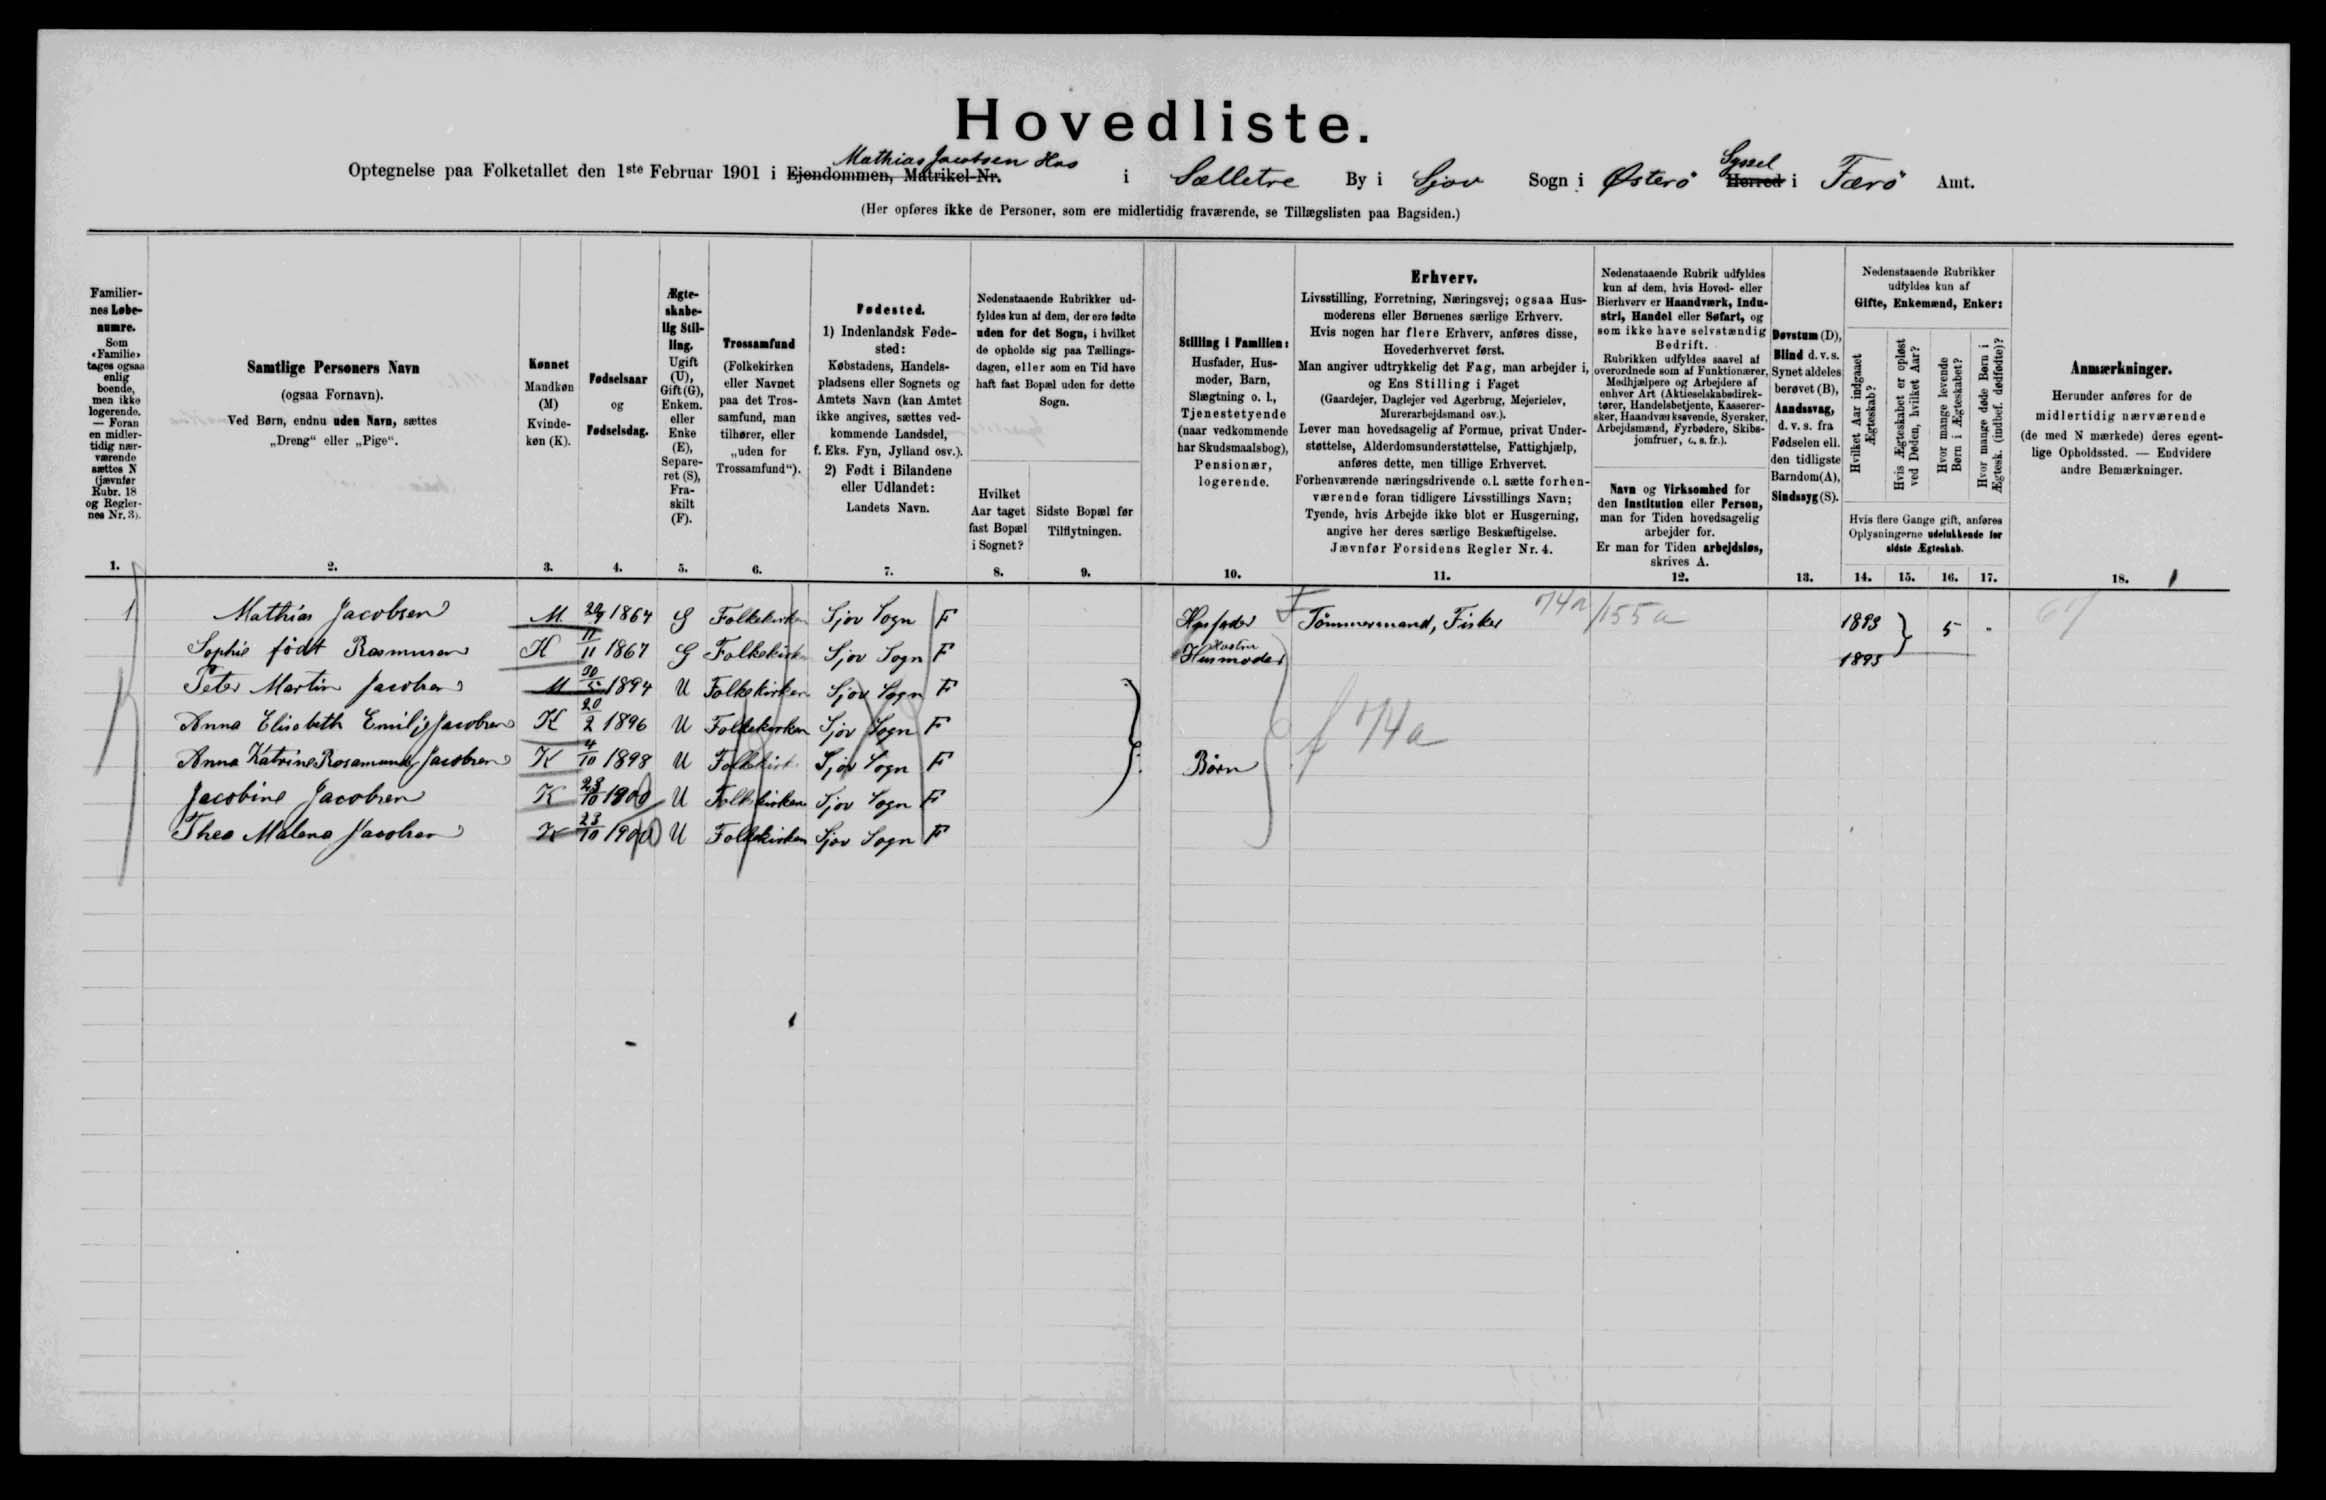 Hovedliste.
Mathias Jacobsen Hus
Syssel
Optegnelse paa Folketallet den 1ste Februar 1901 i Ejendommen, Matrikel-Nr. i Selletre By i Sjov Sogn i Østerö Herred i Færö Amt.
(Her opføres ikke de Personer, som ere midlertidig fraværende, se Tillægslisten paa Bagsiden.)
Familiernes Løbenumre.
Som «Familie» tages ogsaa enlig boende, men ikke logerende. — Foran en midlertidig nærværende sættes N (jævnfør Rubr. 18 og Reglernes Nr. 3).
1.
Samtlige Personers Navn
(ogsaa Fornavn).
Ved Børn, endnu uden Navn, sættes
„Dreng“ eller „Pige“.
2.
Kønnet
Mandkøn (M)
Kvindekøn (K).
3.
Fødselsaar
og
Fødselsdag.
4.
Ægteskabelig Stilling.
Ugift (U), Gift (G), Enkem. eller Enke (E), Separeret (S), Fraskilt (F).
5.
Trossamfund
(Folkekirken eller Navnet paa det Trossamfund, man tilhører, eller „uden for Trossamfund“).
6.
Fødested.
1) Indenlandsk Fødested:
Købstadens, Handelspladsens eller Sognets og Amtets Navn (kan Amtet ikke angives, sættes vedkommende Landsdel, f. Eks. Fyn, Jylland osv.).
2) Født i Bilandene eller Udlandet:
Landets Navn.
7.
Nedenstaaende Rubrikker udfyldes kun af dem, der ere fødte uden for det Sogn, i hvilket de opholde sig paa Tællingsdagen, eller som en Tid have haft fast Bopæl uden for dette Sogn.
Hvilket Aar taget fast Bopæl i Sognet?
8.
Sidste Bopæl før Tilflytningen.
9.
Stilling i Familien:
Husfader, Husmoder, Barn, Slægtning o. l., Tjenestetyende (naar vedkommende har Skudsmaalsbog), Pensionær, logerende.
10.
Erhverv.
Livsstilling, Forretning, Næringsvej; ogsaa Husmoderens eller Børnenes særlige Erhverv.
Hvis nogen har flere Erhverv, anføres disse, Hovederhvervet først.
Man angiver udtrykkelig det Fag, man arbejder i, og Ens Stilling i Faget
(Gaardejer, Daglejer ved Agerbrug, Mejerielev, Murerarbejdsmand osv.).
Lever man hovedsagelig af Formue, privat Understøttelse, Alderdomsunderstøttelse, Fattighjælp, anføres dette, men tillige Erhvervet.
Forhenværende næringsdrivende o. l. sætte forhenværende foran tidligere Livsstillings Navn;
Tyende, hvis Arbejde ikke blot er Husgerning, angive her deres særlige Beskæftigelse.
Jævnfør Forsidens Regler Nr. 4.
11.
Nedenstaaende Rubrik udfyldes kun af dem, hvis Hoved- eller Bierhverv er Haandværk, Industri, Handel eller Søfart, og som ikke have selvstændig Bedrift.
Rubrikken udfyldes saavel af overordnede som af Funktionærer, Medhjælpere og Arbejdere af enhver Art (Aktieselskabsdirektører, Handelsbetjente, Kasserersker, Haandværksvende, Syersker, Arbejdsmænd, Fyrbødere, Skibsjomfruer, o. s. fr.).
Navn og Virksomhed for den Institution eller Person, man for Tiden hovedsagelig arbejder for.
Er man for Tiden arbejdsløs, skrives A.
12.
Døvstum (D), Blind d. v. s. Synet aldeles berøvet (B), Aandssvag, d. v. s. fra Fødselen ell. den tidligste Barndom (A), Sindssyg (S).
13.
Nedenstaaende Rubrikker udfyldes kun af Gifte, Enkemænd, Enker:
Hvilket Aar indgaaet Ægteskab?
Hvis Ægteskabet er opløst ved Døden, hvilket Aar?
Hvor mange levende Børn i Ægteskabet?
Hvor mange døde Børn i Ægtesk. (indbef. dødfødte)?
Hvis flere Gange gift, anføres Oplysningerne udelukkende for sidste Ægteskab.
14. 15. 16. 17.
Anmærkninger.
Herunder anføres for de midlertidig nærværende (de med N mærkede) deres egentlige Opholdssted. — Endvidere andre Bemærkninger.
18.
1 Mathias Jacobsen M 29/9 1864 G Folkekirken Sjov Sogn F Husfader Tömmermand, Fisker 74a/155a 1893 } 5 " 67
Sophie födt Rasmusen K 11/11 1867 G Folkekirken Sjov Sogn F Husmoder Hustru 1893
Peter Martin Jacobsen M 30/5 1894 U Folkekirken Sjov Sogn F
Anna Elisabeth Emilje Jacobsen K 20/2 1896 U Folkekirken Sjov Sogn F f 74a
Anna Katrine Rosamunda Jacobsen K 4/10 1898 U Folkekirk Sjov Sogn F } Börn
Jacobine Jacobsen K 23/10 1900 U Folkekirken Sjov Sogn F
Thea Malena Jacobsen K 23/10 1900 U Folkekirken Sjov Sogn F